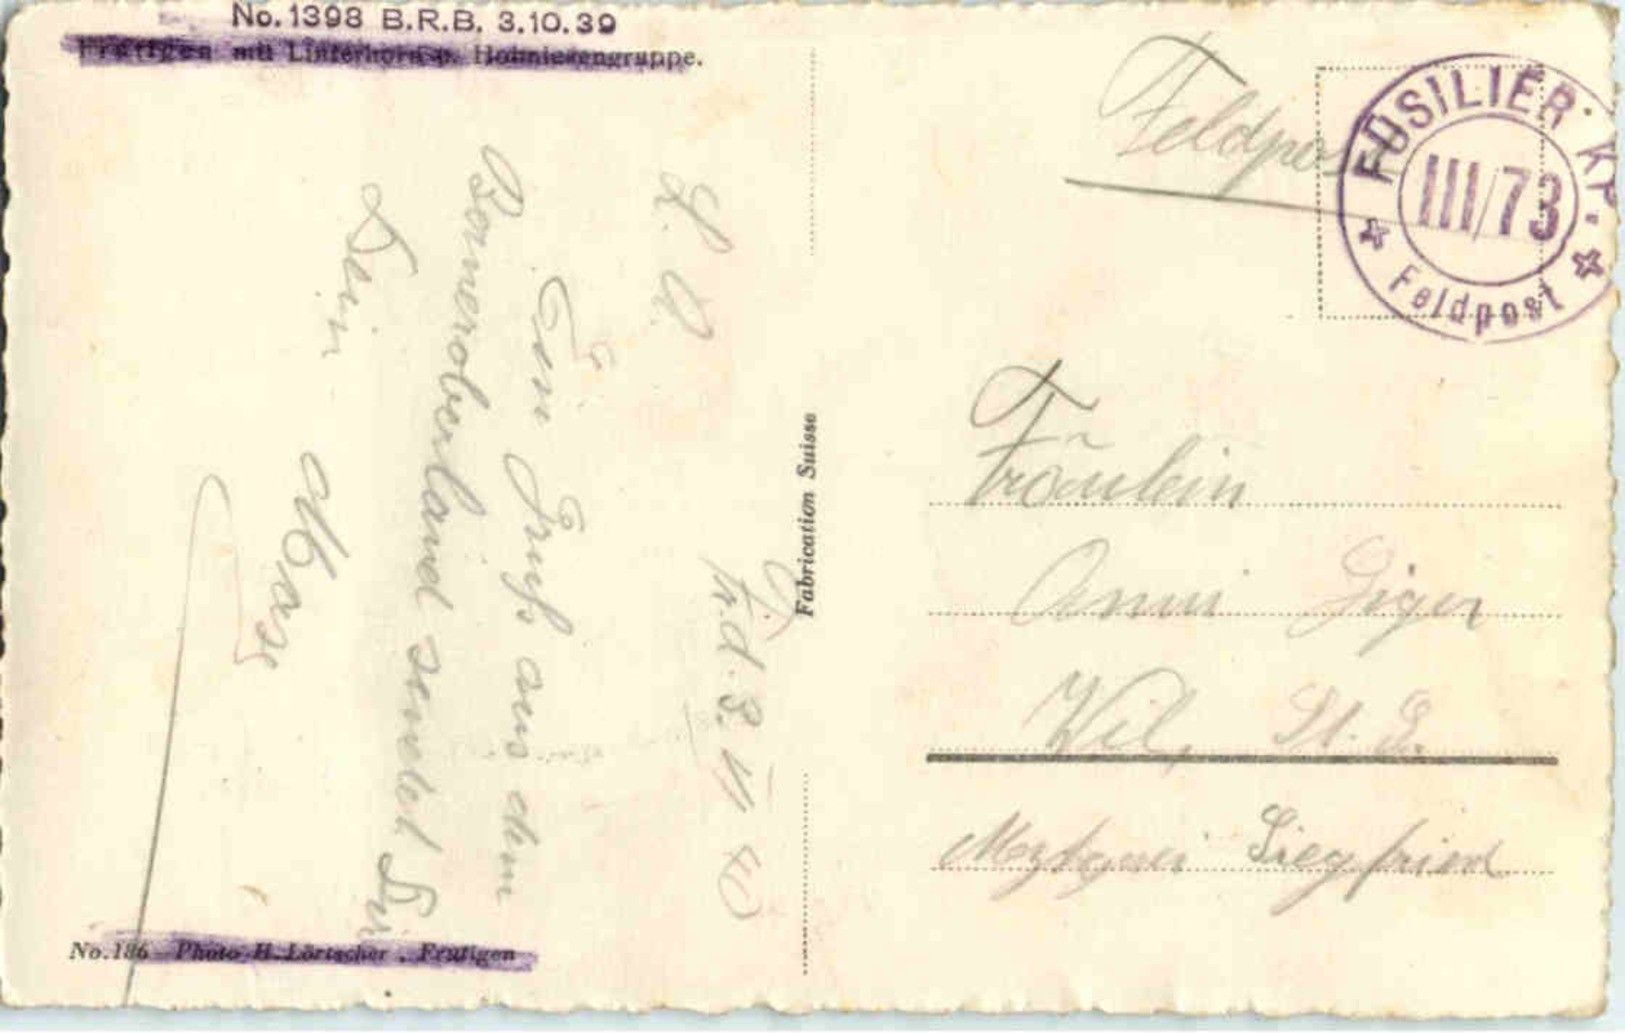 No. 1398 B.R.B. 3.10.39
Frutigen mit Linterhorn u. Hohniesengruppe.
Feldpost
FÜSILIER · KP.
III/73
Feldpost
Fr. d. 8. V 40
L. A.
Ein Gruss aus dem
Berneroberland sendet Dir
Dein
Fabrication Suisse
Fräulein
Anni Giger
Wil, St. G.
Metzgerei Siegfried
No. 186 Photo H. Lörtscher, Frutigen